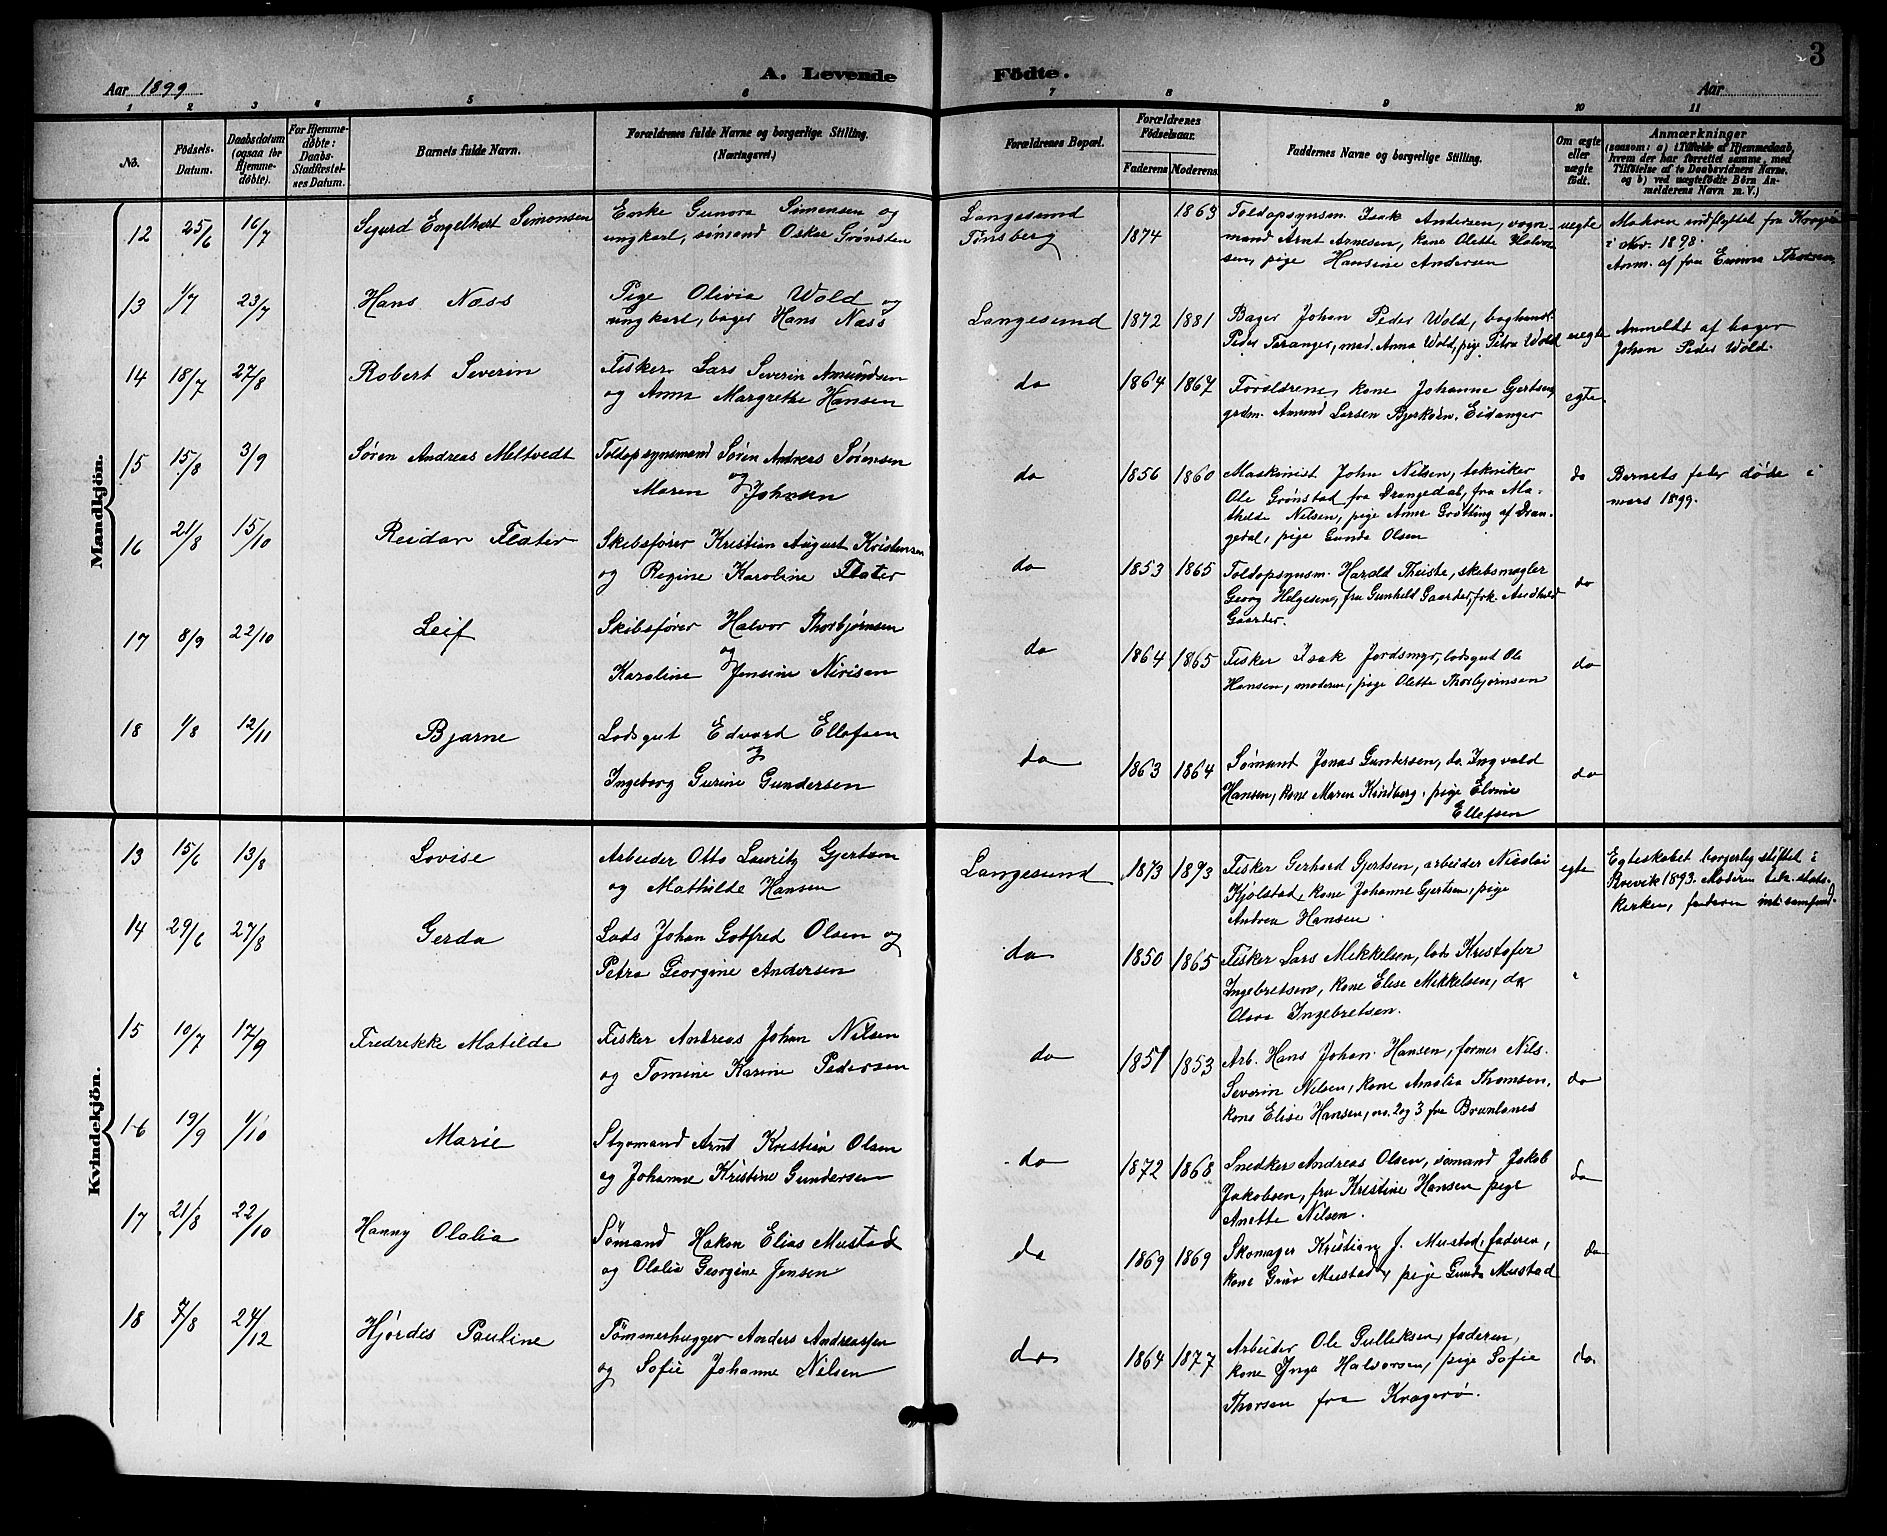 A. Levende Födte.
3
Aar 1899
Aar
1 2 3 4 5 6 7 8 9 10 11
No.
Födsels-
Datum.
Daabsdatum
(ogsaa for
Hjemme-
døbte).
For Hjemme-
døbte:
Daabs-
Stadfæstel-
ses Datum.
Barnets fulde Navn.
Forældrenes fulde Navne og borgerlige Stilling.
(Næringsvei.)
Forældrenes Bopæl.
Forældrenes
Födselsaar.
Faderens
Moderens
Faddernes Navne og borgerlige Stilling.
Om ægte
eller
uægte
født.
Anmærkninger
(saasom: a) i Tilfælde af Hjemmedaab,
hvem der har forrettet samme, med
Tilføielse af to Daabsvidners Navne,
og b) ved uægtefødte Børn An-
melderens Navn m. V.)
Mandkjön.
12 25/6 16/7 Sigurd Engelhart Simonsen
Enke Gunora Simensen og
ungkarl, sømand Oskar Grønsten
Langesund
Tønsberg
1874 1863
Toldopsynsm. Isak Andersen, vogn-
mand Arnt Arnesen, kone Olette Halvor
sen, pige Hansine Andersen
uegte
Moren indflyttet fra Kragerø
i Nov. 1898.
Anm. af fru Emma Thorsen
13 1/7 23/7 Hans Næss
Pige Olivia Wold og
ungkarl, bager Hans Næss
Langesund 1872 1881
Bager Johan Peder Wold, baghandl.
Peder Teranger, mad. Anna Wold, pige Petra Wold
uegte
Anmeldt af bager
Johan Peder Wold.
14 18/7 27/8 Robert Severin
Fisker Lars Severin Amundsen
og Anna Margrethe Hansen
do 1864 1867
Forældrene, kone Johanne Gjertsen,
grdm. Amund Larsen Bjerkøen, Eidanger
egte
15 15/8 3/9 Søren Andreas Meltvedt
Toldopsynsmand Søren Andreas Sørensen
og
Maren Johnsen
do 1856 1860
Maskinist John Nilsen, tekniker
Ole Grønstad fra Drangedal, fru Ma-
thilde Nilsen, pige Anne Grøtting af Dran-
gedal, pige Gunda Olsen
do
Barnets fader døde i
mars 1899.
16 21/8 15/10 Reidar Flater
Skibsfører Kristian August Kristensen
og Regine Karoline Flater
do 1853 1865
Toldopsynsm. Harald Theiste, skibsmægler
Georg Helgesen, fru Gunhild Gaarder, frk. Andhild
Gaarder.
do
17 8/9 22/10 Leif
Skibsfører Halvor Thorbjørnsen
og
Karoline Jensine Nirisen
do 1864 1865
Fisker Isak Jordsmyr, lodsgut Ole
Hansen, moderen, pige Olette Thorbjørnsen
do
18 1/8 12/11 Bjarne
Lodsgut Edvard Ellefsen
og
Ingeborg Gurine Gundersen
do 1863 1864
Sømand Jonas Gundersen, do. Ingvald
Hansen, kone Maren Kindberg, pige Elvine
Ellefsen
do
Kvindekjön.
13 15/6 13/8 Lovise
Arbeider Otto Lauritz Gjertsen
og Mathilde Hansen
Langesund 1873 1873
Fisker Gerhard Gjertsen, arbeider Nicolai
Kjølstad, kone Johanne Gjertsen, pige
Andrea Hansen.
egte
Egteskabet borgerlig stiftet i
Brevik 1893. Moderen tilh. stats-
kirken, faderen int. samfund.
14 29/6 27/8 Gerda
Lods Johan Gotfred Olsen og
Petra Georgine Andersen
do 1850 1865
Fisker Lars Mikkelsen, lods Kristofer
Ingebretsen, kone Elise Mikkelsen, do
Olava Ingebretsen.
15 10/7 17/9 Fredrikke Matilde
Fisker Andreas Johan Nilsen
og Tomine Karine Pedersen
do 1851 1853
Arb. Hans Johan Hansen, former Nils
Severin Nilsen, kone Amalia Thomsen,
kone Elise Hansen, no. 2 og 3 fra Brunlanes
do
16 19/9 1/10 Marie
Styrmand Arnt Kristian Olsen
og Johanne Kristine Gundersen
do 1872 1868
Snedker Andreas Olsen, sømand Jakob
Jakobsen, fru Kristine Hansen pige
Anette Nilsen.
do
17 21/8 22/10 Hanny Olalia
Sømand Hakon Elias Mustad
og Olalia Georgine Jensen
do 1869 1869
Skomager Kristian J. Mustad, faderen,
kone Gina Mustad, pige Gunda Mustad
do
18 7/8 24/12 Hjørdis Pauline
Tømmerhugger Anders Andreassen
og Sofie Johanne Nilsen
do 1864 1877
Arbeider Ole Gulliksen, faderen,
kone Inga Halvorsen, pige Sofie
Thorsen fra Kragerø.
do.